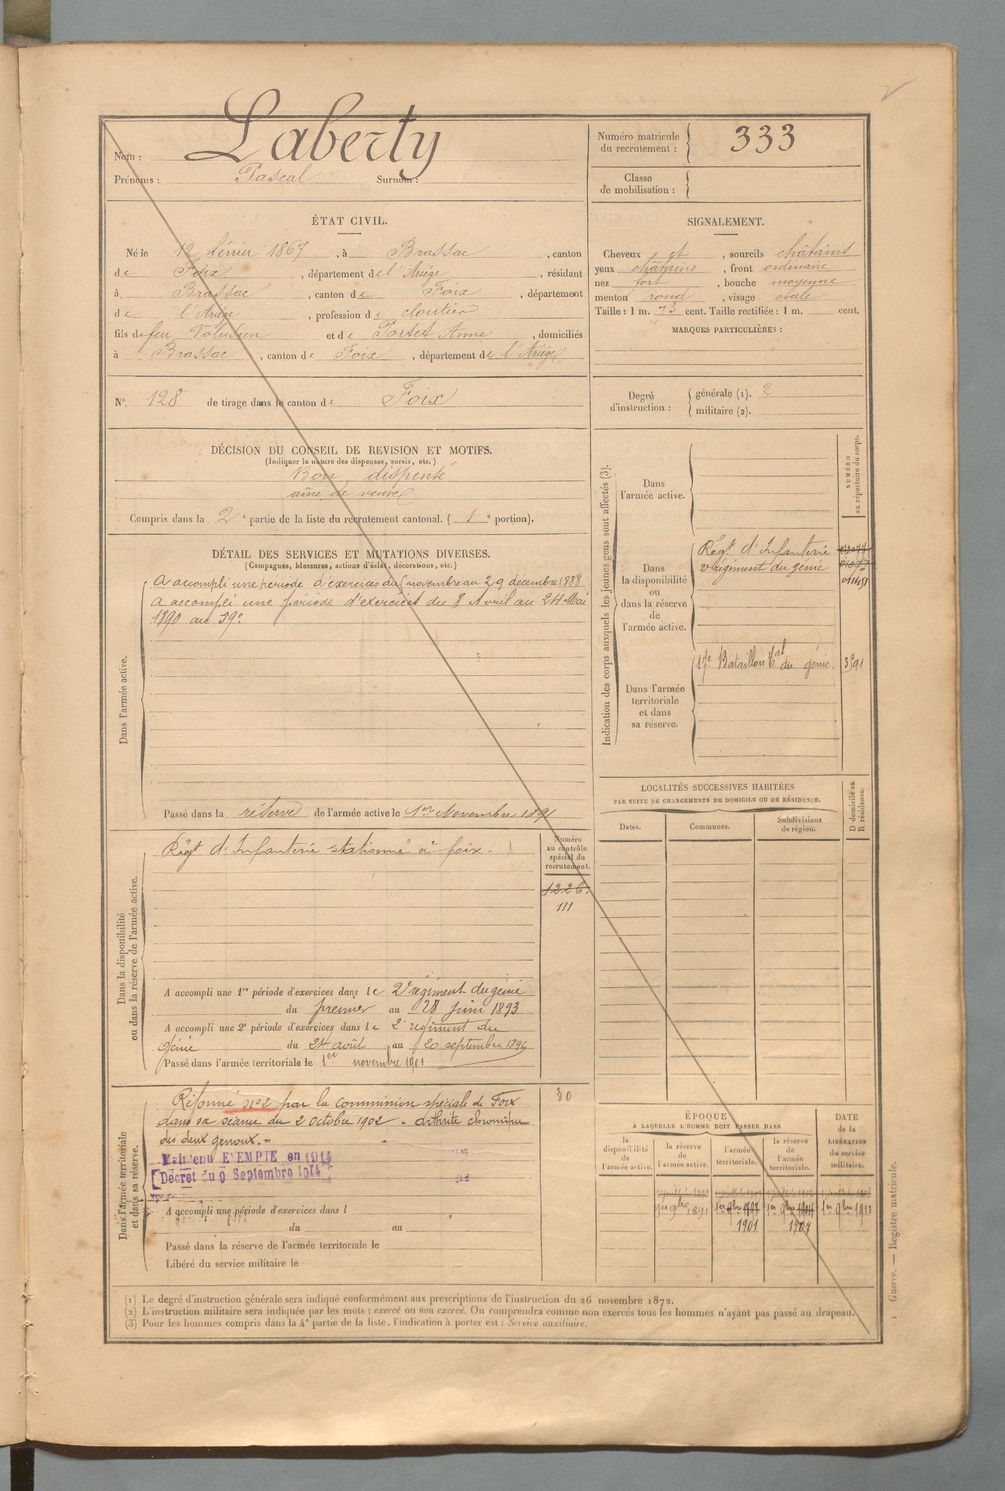 Nom : Laberty
Prénoms : Pascal Surnom :
Numéro matricule du recrutement : 333
Classe de mobilisation :
ÉTAT CIVIL.
Né le 12 février 1867, à Brassac, canton
de Foix, département de l'Ariège, résidant
à Brassac, canton de Foix, département
de l'Ariège, profession de cloutier
fils de feu Volusien et de Portet Anne, domiciliés
à Brassac, canton de Foix, département de l'Ariège
SIGNALEMENT.
Cheveux et, sourcils châtains
yeux châtains, front ordinaire
nez fort, bouche moyenne
menton rond, visage ovale
Taille : 1 m. 73 cent. Taille rectifiée : 1 m. cent.
MARQUES PARTICULIÈRES :
N° 128 de tirage dans le canton de Foix
Degré d'instruction : générale (1). 2
militaire (2).
DÉCISION DU CONSEIL DE REVISION ET MOTIFS.
(Indiquer la nature des dispenses, sursis, etc.)
Bon, dispensé
aîné de veuve
Compris dans la 2e partie de la liste du recrutement cantonal. (1e portion).
DÉTAIL DES SERVICES ET MUTATIONS DIVERSES.
(Campagnes, blessures, actions d'éclat, décorations, etc.)
Dans l'armée active.
A accompli une période d'exercices du novembre au 29 décembre 1888
A accompli une période d'exercices du 8 Avril au 24 Mai
1890 au 59e
Passé dans la réserve de l'armée active le 1er Novembre 1891
Indication des corps auxquels les jeunes gens sont affectés (3).
NUMÉRO au répertoire du corps.
Dans l'armée active.
Dans la disponibilité ou dans la réserve de l'armée active.
Régt d'Infanterie
2e régiment du génie
Dans l'armée territoriale et dans sa réserve.
17e Bataillon tal du génie.
LOCALITÉS SUCCESSIVES HABITÉES
PAR SUITE DE CHANGEMENTS DE DOMICILE OU DE RÉSIDENCE.
Dates. Communes. Subdivisions de région. D domicile ou R résidence.
Dans la disponibilité ou dans la réserve de l'armée active.
Régt d'Infanterie stationné à foix.
Numéro au contrôle spécial du recrutement.
1226.
111
A accompli une 1re période d'exercices dans le 2e régiment du génie
du premier au 28 juin 1893
A accompli une 2e période d'exercices dans le 2e régiment du
génie du 24 août au 20 septembre 1896
Passé dans l'armée territoriale le 1er novembre 1901
Dans l'armée territoriale et dans sa réserve.
Réformé n°2 par la commission spéciale de Foix
dans sa séance du 2 octobre 1902 " arthrite chronique
des deux genoux. "
30
Maintenu EXEMPTE en 1914
Décret du 9 Septembre 1914
A accompli une période d'exercices dans l
du au
Passé dans la réserve de l'armée territoriale le
Libéré du service militaire le
ÉPOQUE
À LAQUELLE L'HOMME DOIT PASSER DANS
la disponibilité de l'armée active.
la réserve de l'armée active.
l'armée territoriale.
la réserve de l'armée territoriale.
DATE de la LIBÉRATION du service militaire.
1er 9bre 1891
1901
1907
1er 9bre 1913
(1) Le degré d'instruction générale sera indiqué conformément aux prescriptions de l'instruction du 26 novembre 1872.
(2) L'instruction militaire sera indiquée par les mots : exercé ou non exercé. On comprendra comme non exercés tous les hommes n'ayant pas passé au drapeau.
(3) Pour les hommes compris dans la 4e partie de la liste, l'indication à porter est : Service auxiliaire.
Guerre. — Registre matricule.